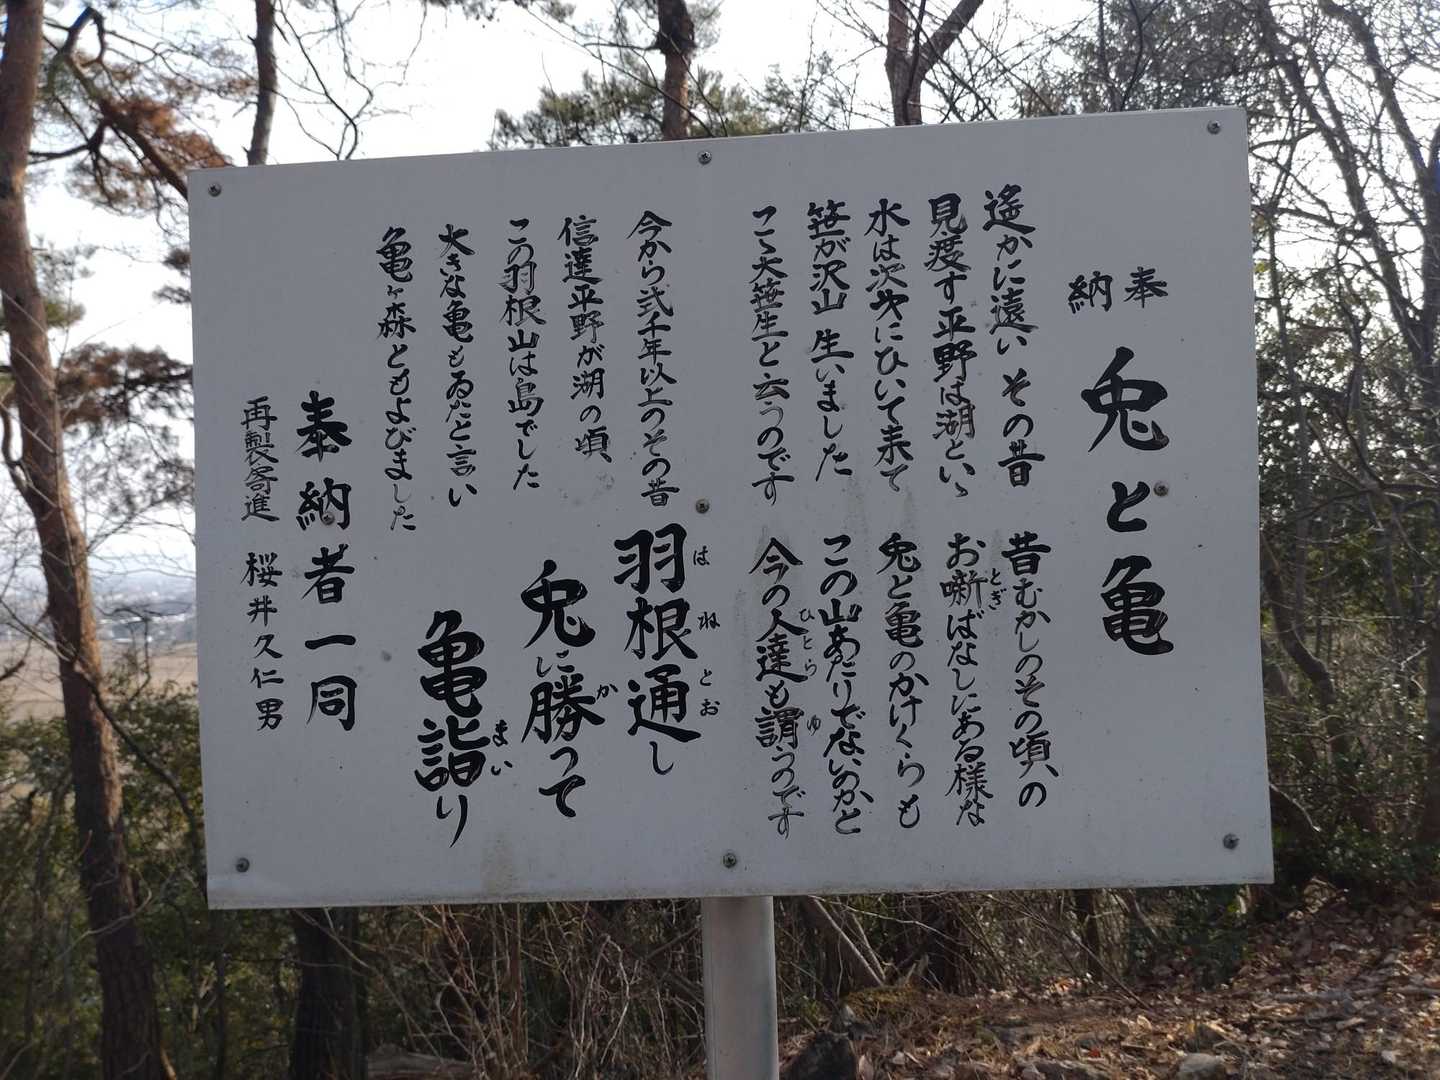 奉納
兎と亀
遙かに遠いその昔
見度す平野は湖といゝ
水は次々にひいて来て
笹が沢山生いました
こゝ大笹生と云うのです
昔むかしのその頃の
お噺ばなしにある様な
兎と亀のかけくらも
この山あたりでないのかと
今の人達も謂うのです
今から弍千年以上のその昔
信達平野が湖の頃
この羽根山は島でした
大きな亀もゐたと言い
亀ヶ森ともよびました
羽根通し
兎に勝って
亀詣り
奉納者一同
再製寄進 桜井久仁男